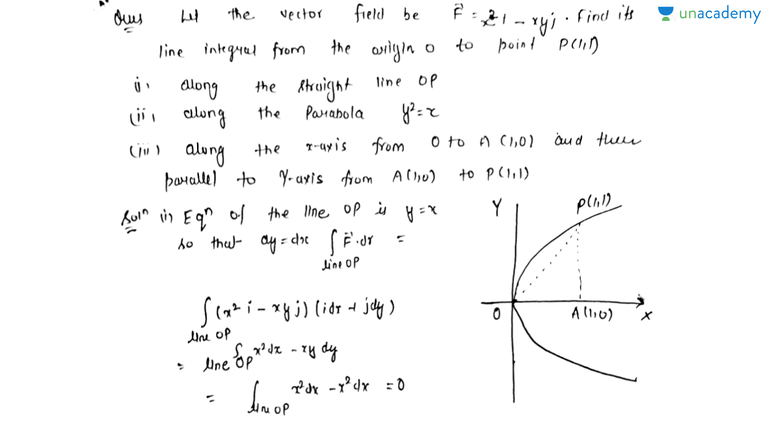 Ques Let the vector field be F⃗ = x²i - xyj. Find its
unacademy
line integral from the origin O to point P(1,1)
(i) along the straight line OP
(ii) along the Parabola y² = x
(iii) along the x-axis from O to A(1,0) and then
parallel to Y-axis from A(1,0) to P(1,1)
Solⁿ (i) Eqⁿ of the line OP is y = x
so that dy = dx ∫ F⃗·dr =
line OP
∫ (x² i - xy j) (i dx + j dy)
line OP
= ∫ x² dx - xy dy
line OP
= ∫ x² dx - x² dx = 0
line OP
Y
P(1,1)
O
A(1,0)
X